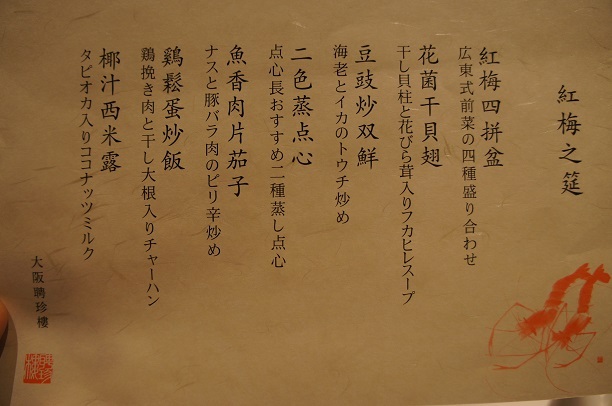 紅梅之筵
紅梅四拼盆
広東式前菜の四種盛り合わせ
花菌干貝翅
干し貝柱と花びら茸入りフカヒレスープ
豆豉炒双鮮
海老とイカのトウチ炒め
二色蒸点心
点心長おすすめ二種蒸し点心
魚香肉片茄子
ナスと豚バラ肉のピリ辛炒め
鶏鬆蛋炒飯
鶏挽き肉と干し大根入りチャーハン
椰汁西米露
タピオカ入りココナッツミルク
大阪聘珍樓